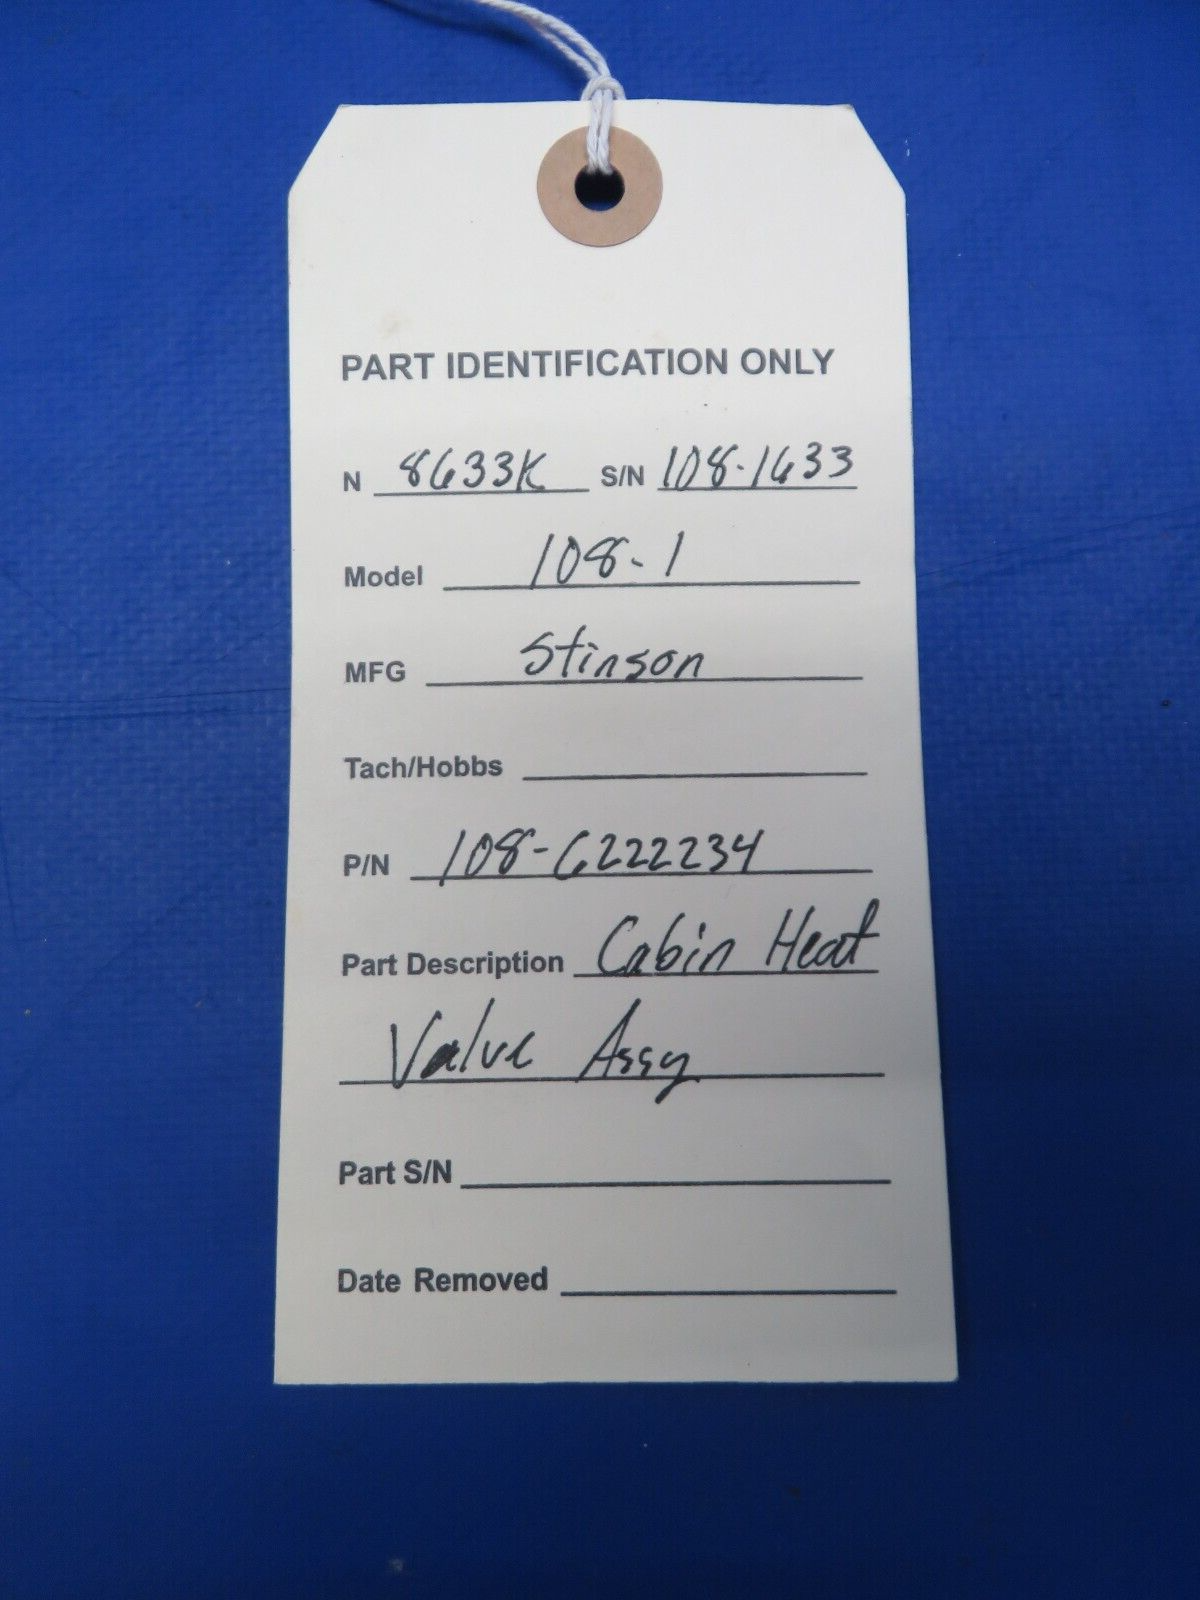 PART IDENTIFICATION ONLY
N 8633K S/N 108-1633
Model 108-1
MFG Stinson
Tach/Hobbs
P/N 108-6222234
Part Description Cabin Heat
Valve Assy
Part S/N
Date Removed